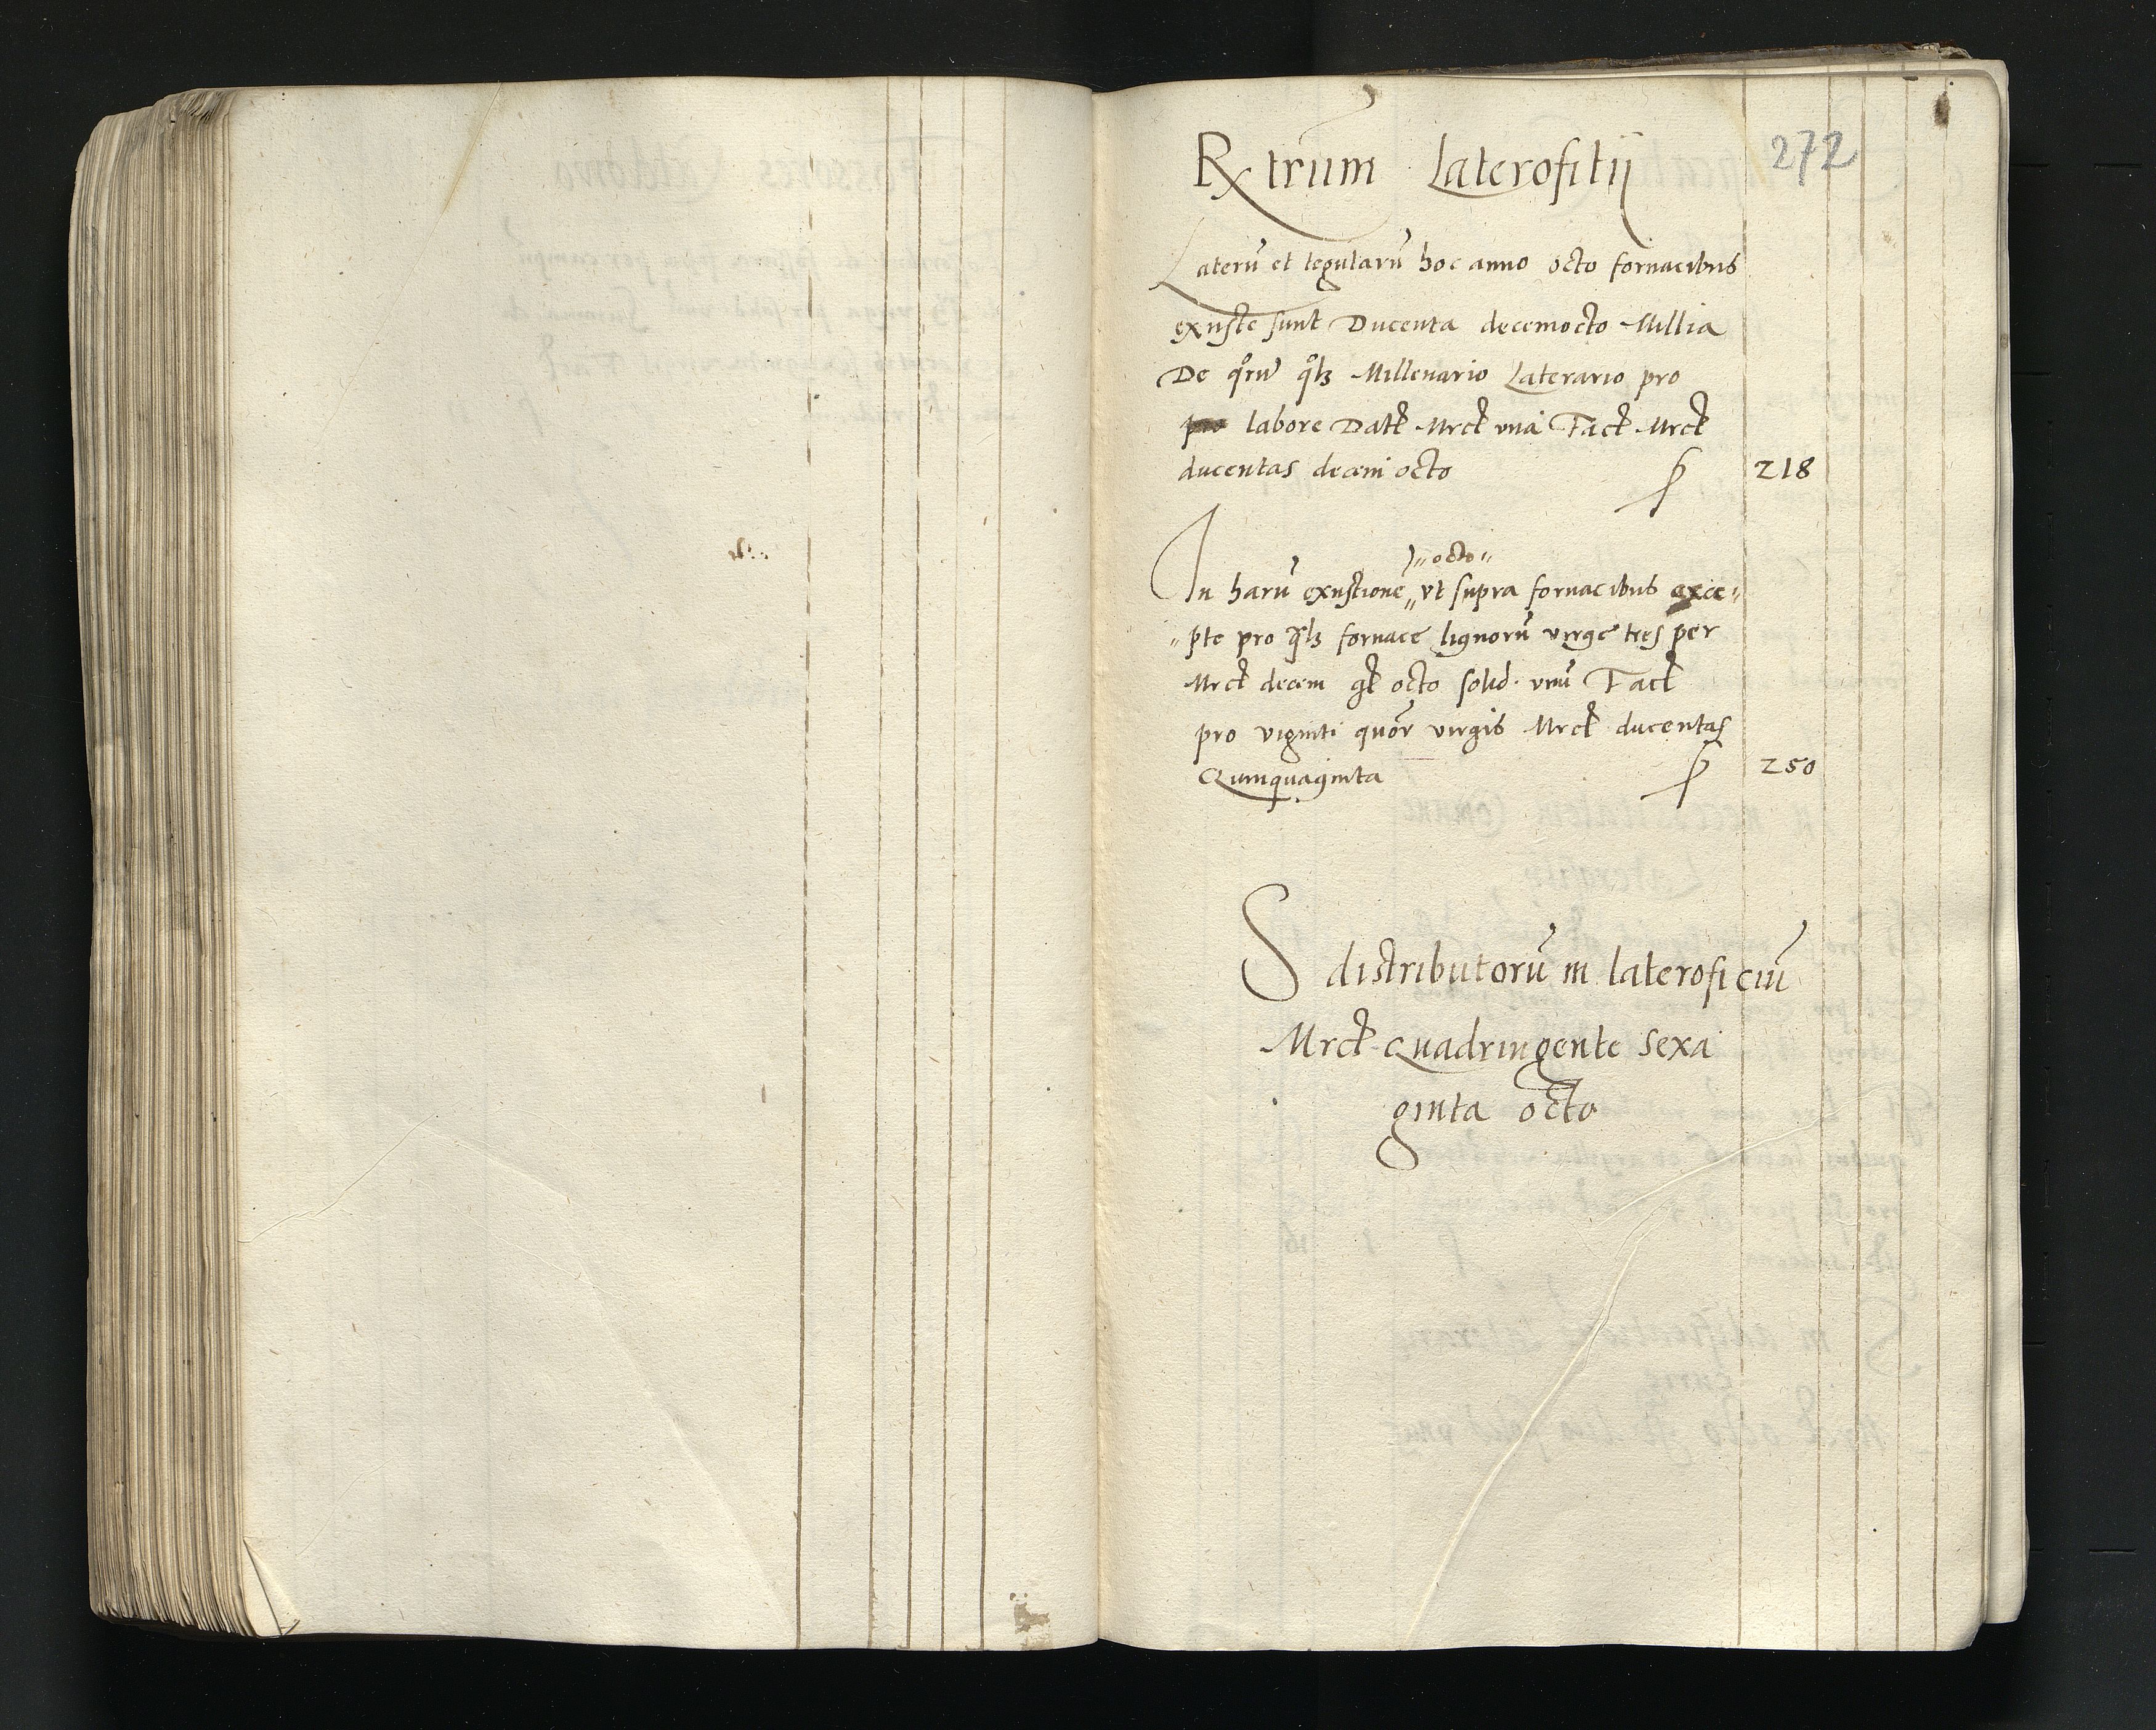 272
Rx trum Laterofitij
Laterũ et tegularũ hoc anno octo fornacibus
exuste sunt Ducenta decemocto Millia
De qͦrũ Millenario Laterario pro
pro labore Datt Mrct una Fact Mrct
ducentas decem octo ꝑ 218
octo
In harũ exustione ut supra fornacibus exce
pte pro fornace lignorũ virge tres per
Mrct decem gt octo solid. unũ Fact
pro viginti quor virgis Mrct ducentas
Quinquaginta ꝑ 250
S distributorũ in lateroficiũ
Mrct quadringente sexa
ginta octo